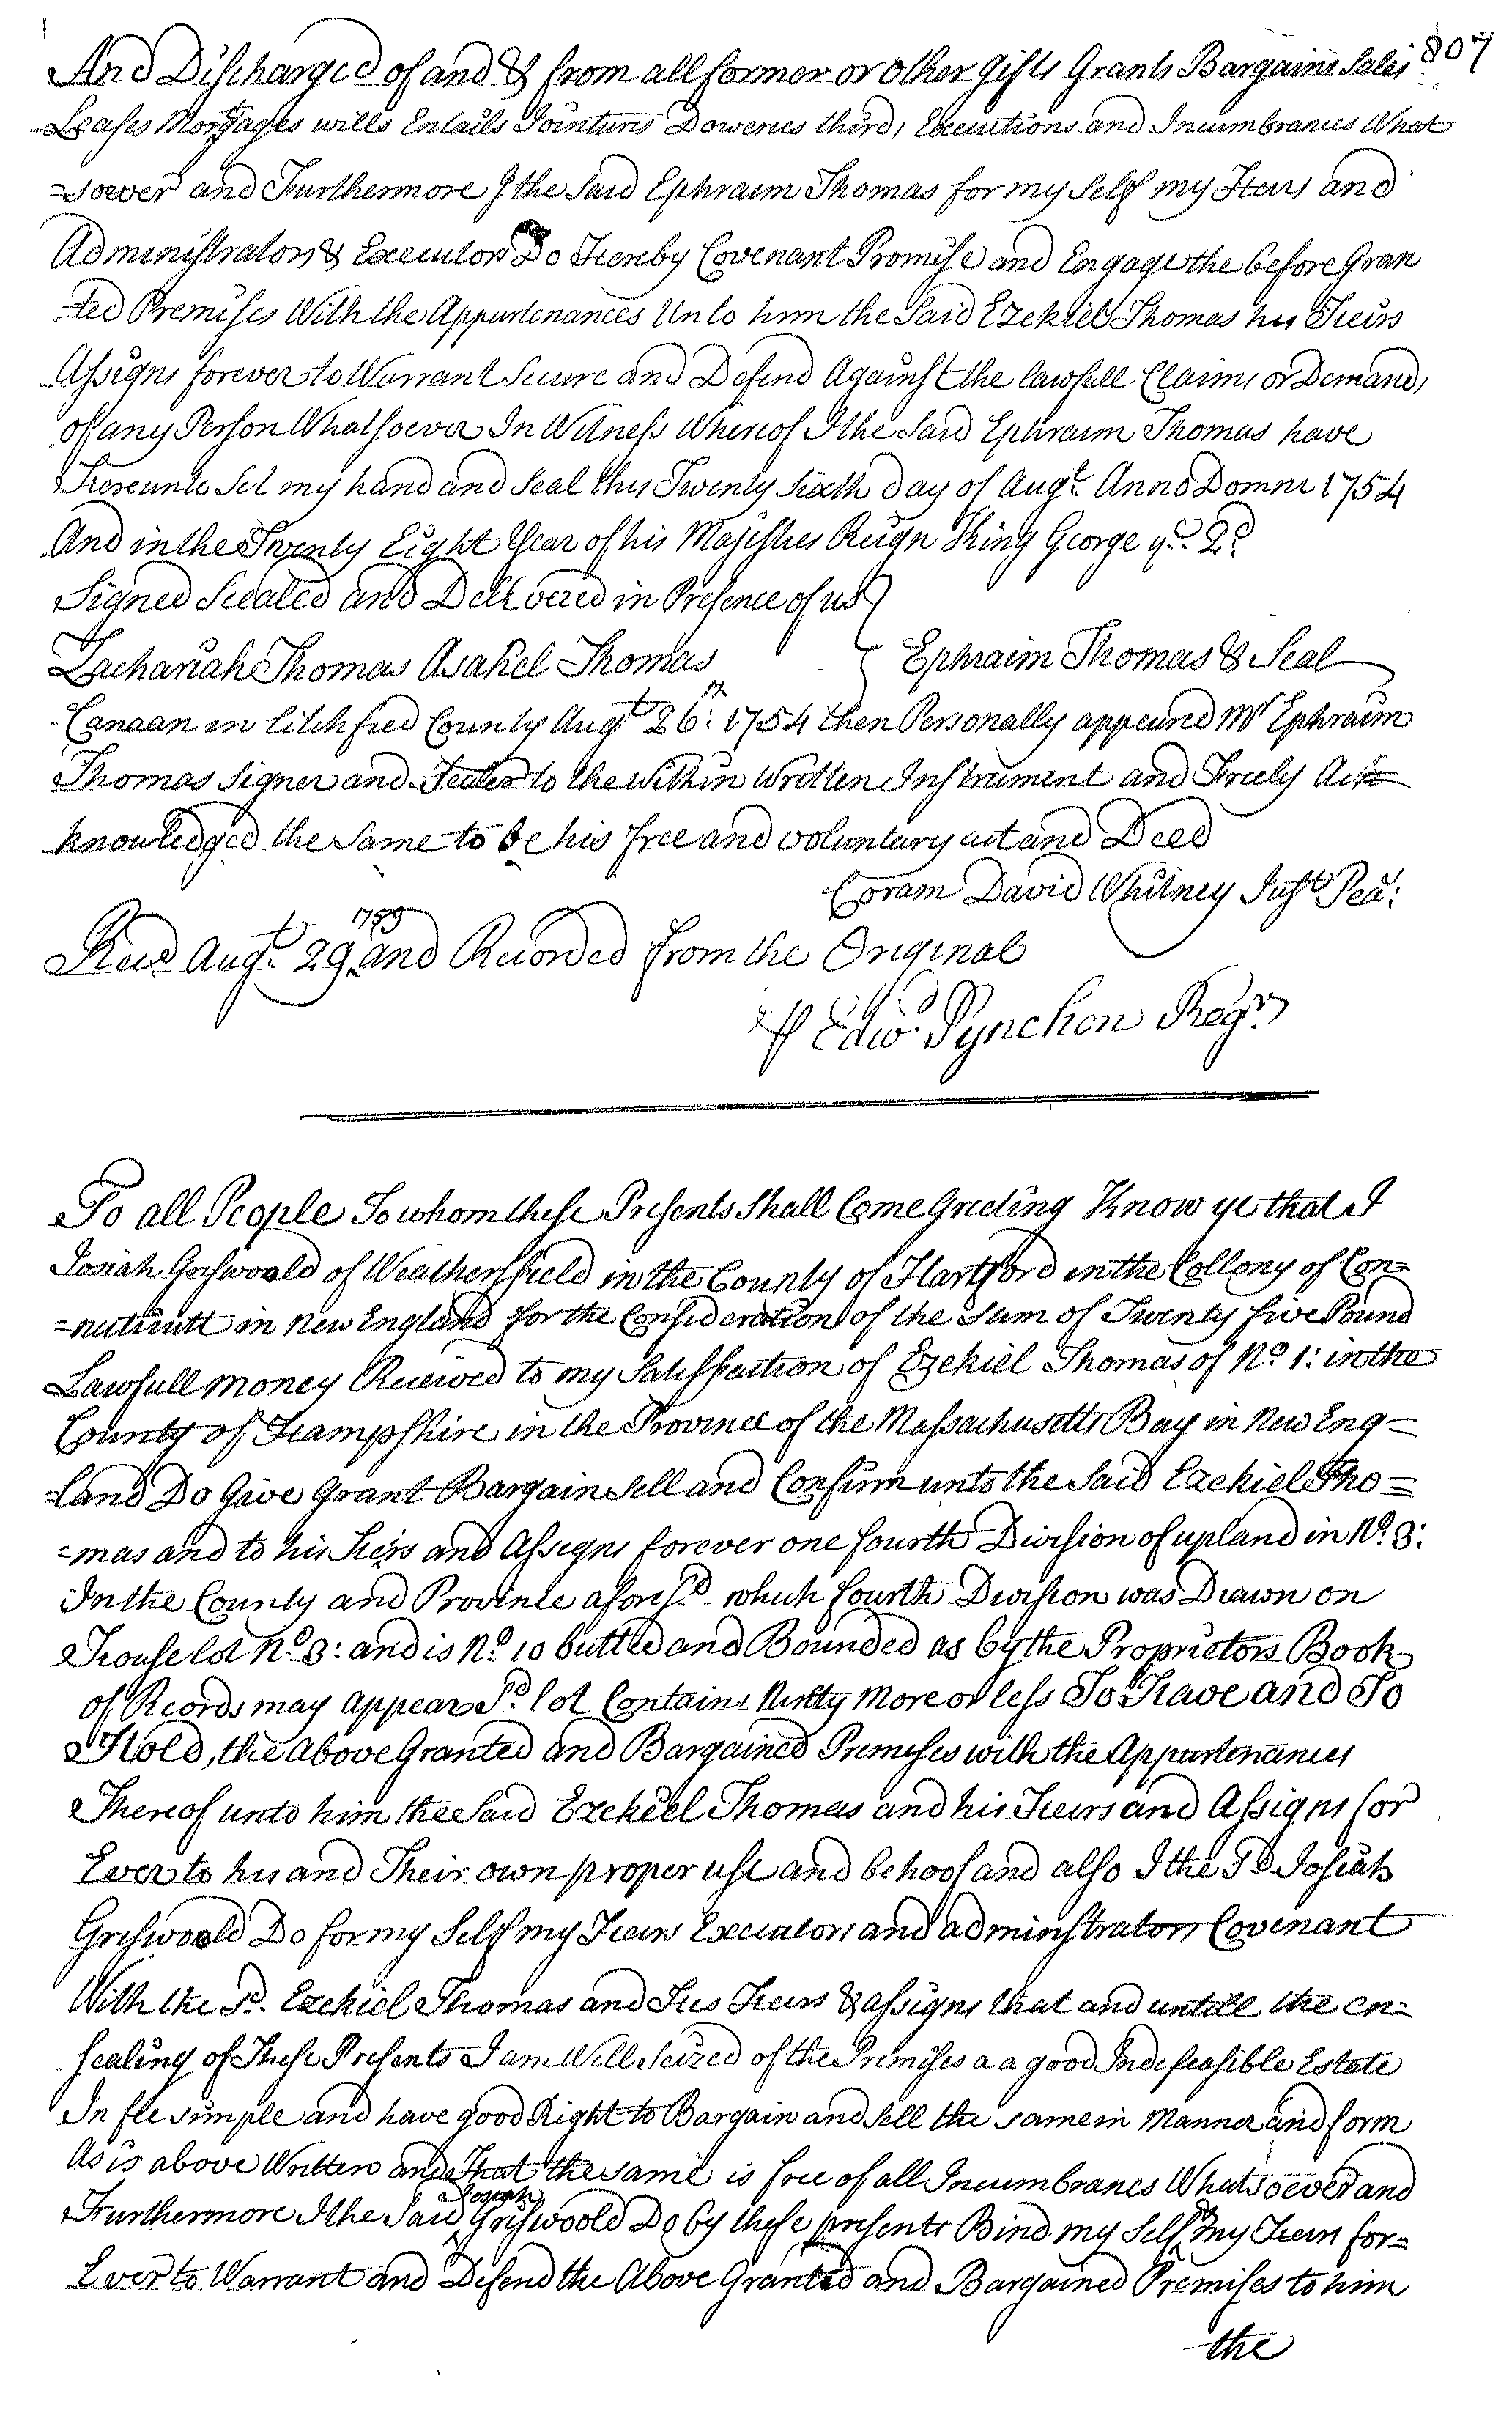 807
And Discharged of and & from all former or other Gifts Grants Bargains Sales
Leases Mortgages wills Entails Jointures Doweries third, Executions and Incumbrances What
=soever and Furthermore I the Said Ephraim Thomas for my Self my Heirs and
Administrators & Executors Do Hereby Covenant Promise and Engage the before Gran
ted Premises With the Appurtenances Unto him the Said Ezekiel Thomas his Heirs
Assigns forever to Warrant Secure and Defend Against the lawfull Claims or Demands
of any Person Whatsoever In Witness Whereof I the Said Ephraim Thomas have
Hereunto Set my hand and Seal this Twenty Sixth day of Augt. Anno Domni 1754
And in the Twenty Eight Year of his Majesties Reign King George ye. 2d
Signed Sealed and Delivered in Presence of us
Zachariah Thomas Asahel Thomas Ephraim Thomas & Seal
Canaan in Litchfied County Augt 26th: 1754 then Personally appeared Mr Ephraim
Thomas Signer and Sealer to the within Written Instrument and Freely Ack
knowledged the Same to be his free and voluntary act and Deed
Coram David Whitney Just Pea:
Recd Augt. 29. 1759 and Recorded from the Original
⅌ Edwd. Pynchon Regr.
To all People To whom these Presents Shall Come Greeting Know ye that I
Josiah Griswoold of Weathersfield in the County of Hartford in the Collony of Con=
=nuticutt in New England for the Consideration of the Sum of Twenty five Pound
Lawfull money Received to my Satisfaction of Ezekiel Thomas of No 1: in the
County of Hampshire in the Province of the Massachusetts Bay in New Eng=
=land Do Give Grant Bargain Sell and Confirm unto the Said Ezekiel Tho=
=mas and to his Heirs and Assigns forever one fourth Division of upland in No. 3:
In the County and Province aforesd. which fourth Division was Drawn on
House lot No. 3: and is No. 10 butted and Bounded as by the Proprietors Book
of Records may appear Sd. lot Contains Ninty More or less To Have and To
Hold, the Above Granted and Bargained Premises with the Appurtenances
Thereof unto him the Said Ezekiel Thomas and his Heirs and Assigns for
Ever to his and Their own proper use and behoof and also I the Sd Josiah
Griswoold Do for my Self my Heirs Executors and administrators Covenant
With the Sd. Ezekiel Thomas and His Heirs & assigns that and untill the en=
sealing of These Presents I am Well Seized of the Premises a a good Indefeasible Estate
In fee simple and have good Right to Bargain and Sell the same in Manner and form
As is above Written and That the same is free of all Incumbrances Whatsoever and
Furthermore I the Said Joseph Griswoold Do by these presents Bind my Self & my Heirs for=
Ever to Warrant and Defend the Above Granted and Bargained Premises to him
the